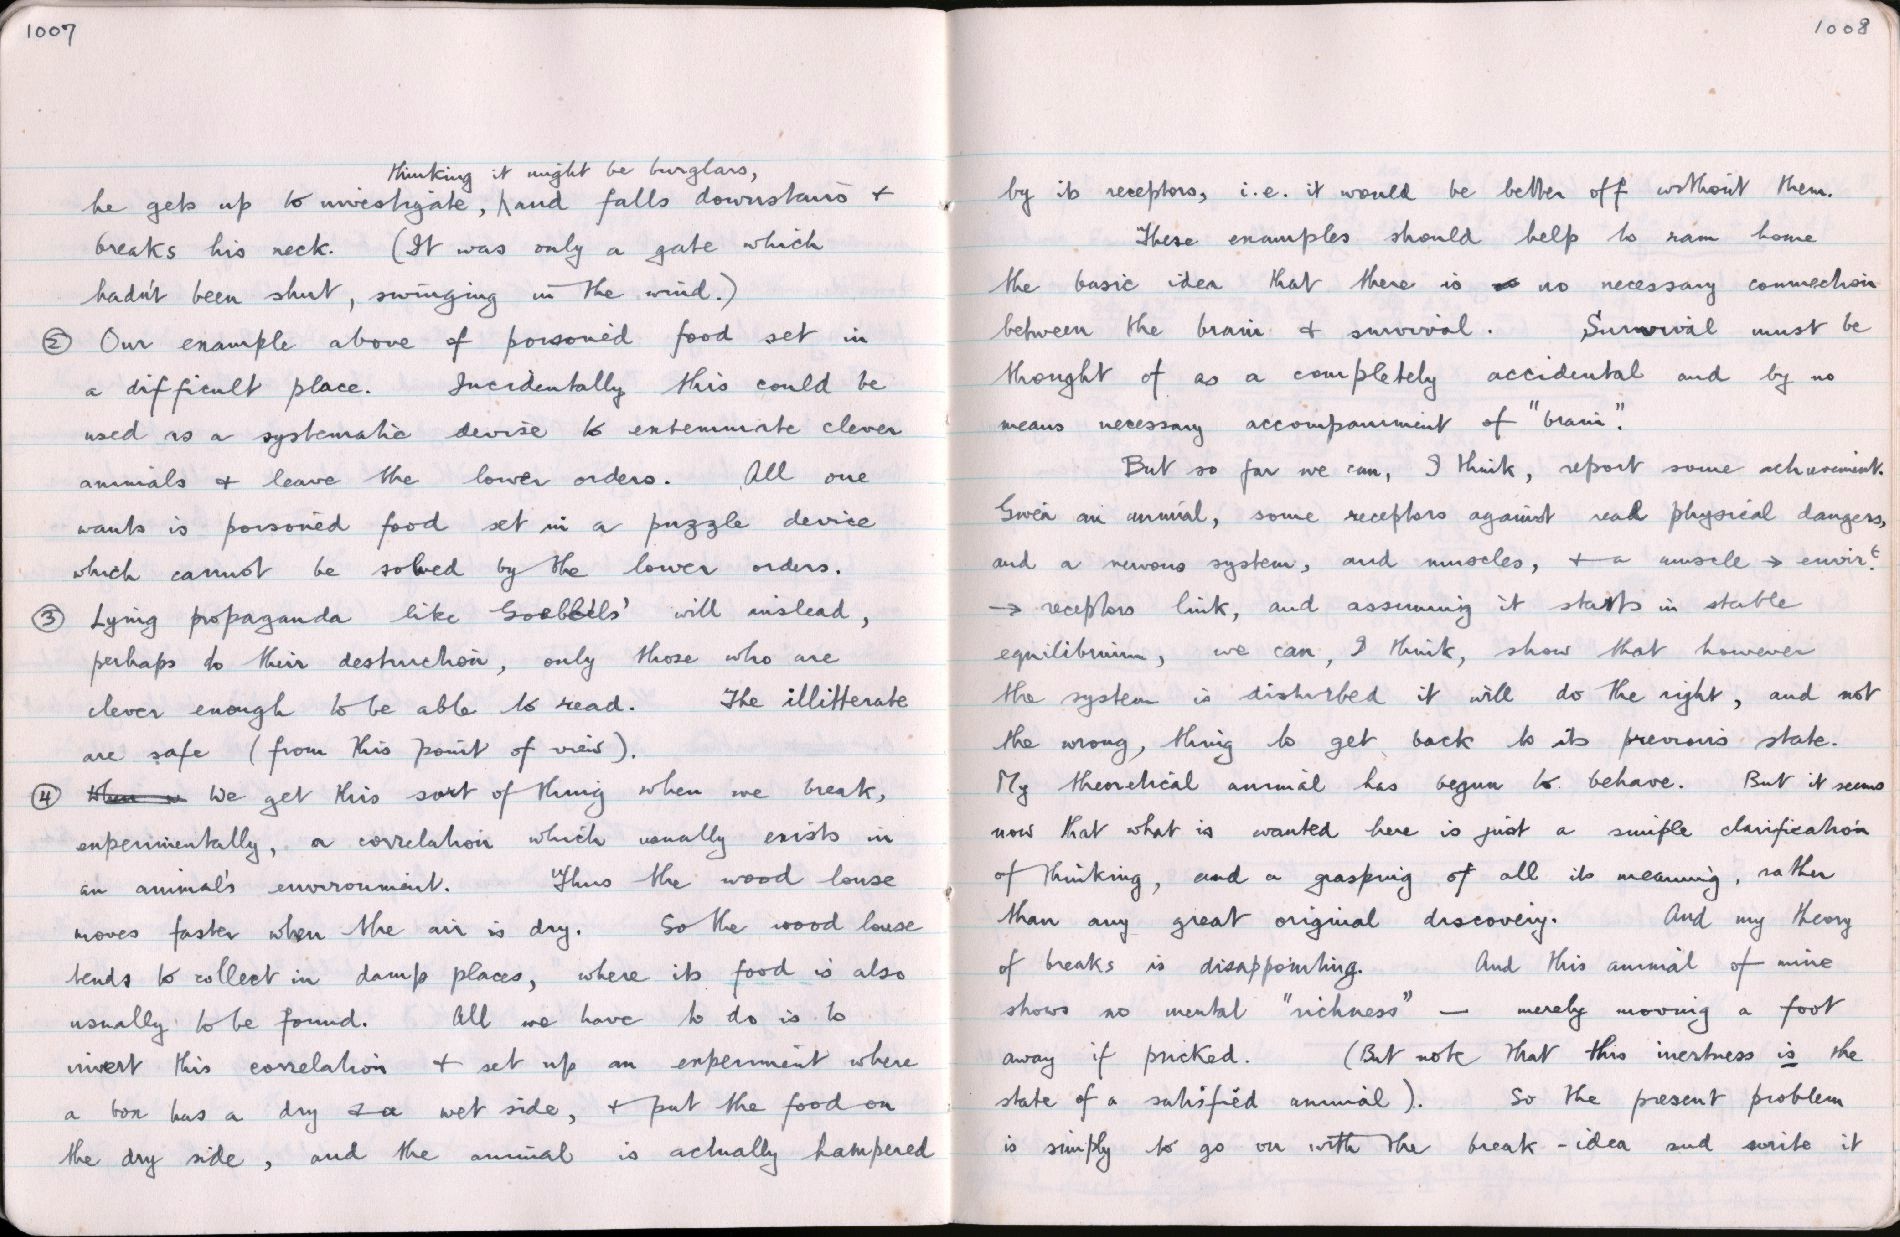 1007
thinking it might be burglars,
he gets up to investigate, and falls downstairs +
breaks his neck. (It was only a gate which
hadn't been shut, swinging in the wind.)
② Our example above of poisoned food set in
a difficult place. Incidentally this could be
used as a systematic devise to exterminate clever
animals + leave the lower orders. All one
wants is poisoned food set in a puzzle device
which cannot be solved by the lower orders.
③ Lying propaganda like Goebbels' will mislead,
perhaps to their destruction, only those who are
clever enough to be able to read. The illitterate
are safe (from this point of view).
④ We get this sort of thing when we break,
experimentally, a correlation which usually exists in
an animal's environment. Thus the wood louse
moves faster when the air is dry. So the wood louse
tends to collect in damp places, where its food is also
usually to be found. All we have to do is to
invert this correlation + set up an experiment where
a box has a dry + a wet side, + put the food on
the dry side, and the animal is actually hampered
1008
by its receptors, i.e. it would be better off without them.
These examples should help to ram home
the basic idea that there is no necessary connection
between the brain + survival. Survival must be
thought of as a completely accidental and by no
means necessary accompaniment of "brain".
But so far we can, I think, report some achievement.
Given an animal, some receptors against real physical dangers,
and a nervous system, and muscles, + a muscle → envir.t
→ receptors link, and assuming it starts in stable
equilibrium, we can, I think, show that however
the system is disturbed it will do the right, and not
the wrong, thing to get back to its previous state.
My theoretical animal has begun to behave. But it seems
now that what is wanted here is just a simple clarification
of thinking, and a grasping of all its meaning, rather
than any great original discovery. And my theory
of breaks is disappointing. And this animal of mine
shows no mental "richness" — merely moving a foot
away if pricked. (But note that this inertness is the
state of a satisfied animal). So the present problem
is simply to go on with the break-idea and write it